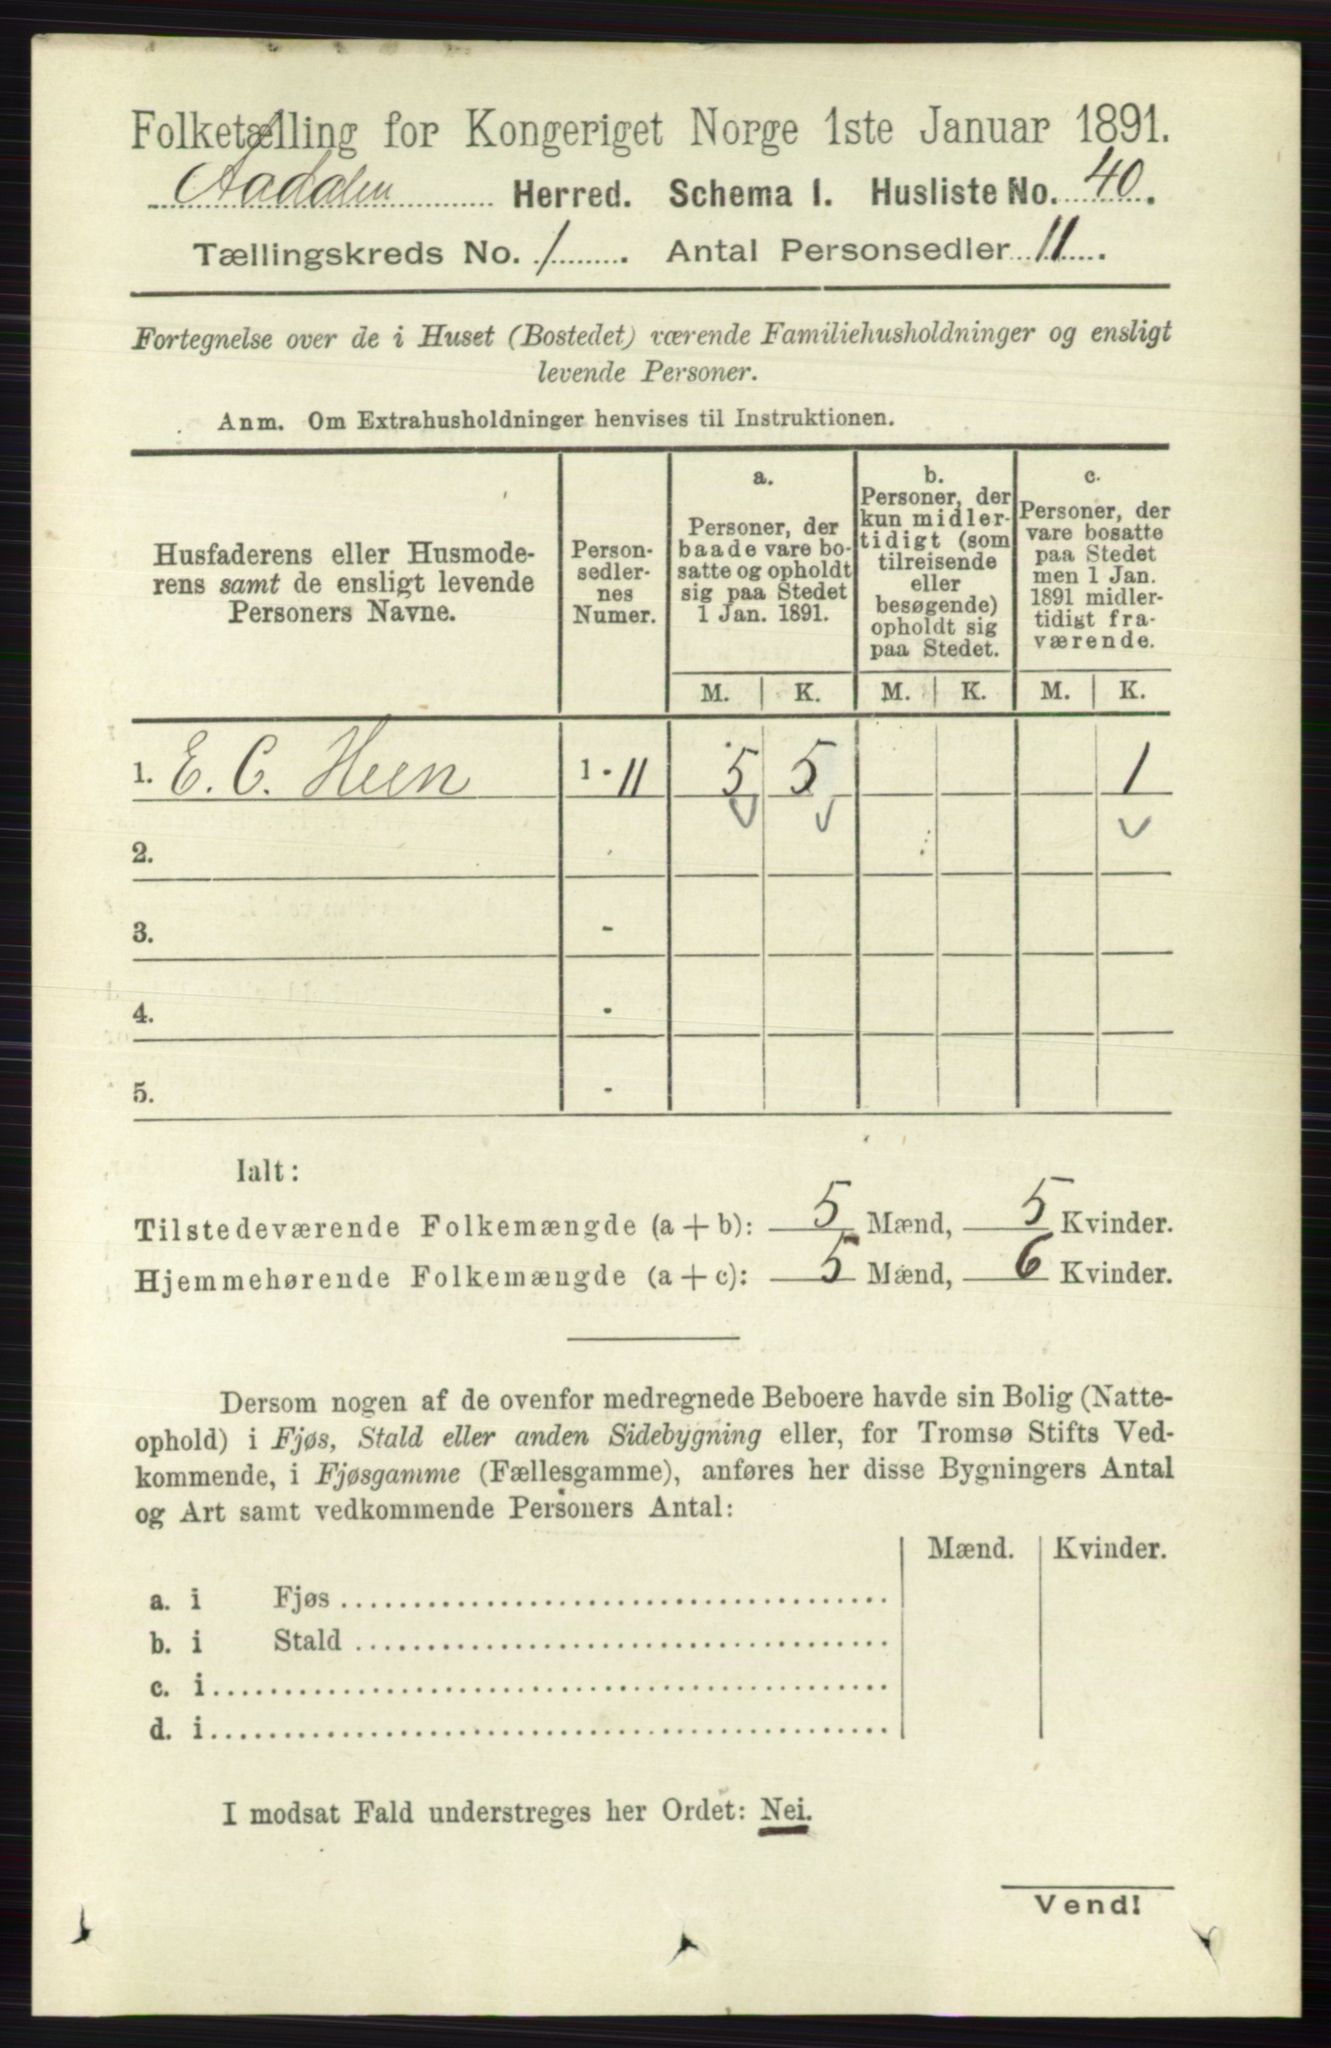 Folketælling for Kongeriget Norge 1ste Januar 1891.
Aadalen Herred. Schema I. Husliste No. 40.
Tællingskreds No. 1. Antal Personsedler 11.
Fortegnelse over de i Huset (Bostedet) værende Familiehusholdninger og ensligt
levende Personer.
Anm. Om Extrahusholdninger henvises til Instruktionen.
Husfaderens eller Husmode-
rens samt de ensligt levende
Personers Navne.
Person-
sedler-
nes
Numer.
a.
Personer, der
baade vare bo-
satte og opholdt
sig paa Stedet
1 Jan. 1891.
b.
Personer, der
kun midler-
tidigt (som
tilreisende
eller
besøgende)
opholdt sig
paa Stedet.
c.
Personer, der
vare bosatte
paa Stedet
men 1 Jan.
1891 midler-
tidigt fra-
værende.
M. K. M. K. M. K.
1. E. C. Heen 1 - 11 5 5 1
2.
3. -
4. -
5. -
Ialt:
Tilstedeværende Folkemængde (a + b): 5 Mænd, 5 Kvinder.
Hjemmehørende Folkemængde (a + c): 5 Mænd, 6 Kvinder.
Dersom nogen af de ovenfor medregnede Beboere havde sin Bolig (Natte-
ophold) i Fjøs, Stald eller anden Sidebygning eller, for Tromsø Stifts Ved-
kommende, i Fjøsgamme (Fællesgamme), anføres her disse Bygningers Antal
og Art samt vedkommende Personers Antal:
Mænd. Kvinder.
a. i Fjøs
b. i Stald
c. i
d. i
I modsat Fald understreges her Ordet: Nei.
Vend!